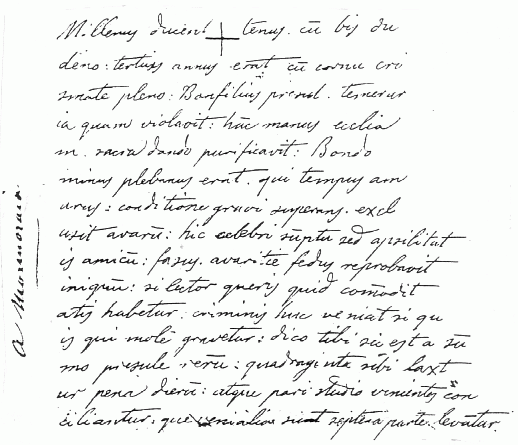 Millenus ducent + tenus. cū bis du
deno: tertius annus erat cū cornu cri
smate pleno: Bonfilius presul. temerur
ia quam violavit: hūc manus ecclia
m. sacra dando purificavit: Bondo
minus plebanus erat. qui tempus am
urus: conditione gravi superans. excl
usit avarū: hic celebri sūptu sed apsilitat
is amicū: fasus. avaritie fedus reprobavit
iniquū: si lector queris quid comodit
atis habetur. criminis huc veniat si qu
is qui mole gravetur: dico tibi sic est a sū
mo presule rerū: quadraginta sibi laxt
ur pena dierū: atque pari studio venientes con
ciliantur. que venialia sunt septena parte levātur.
A Marmorea